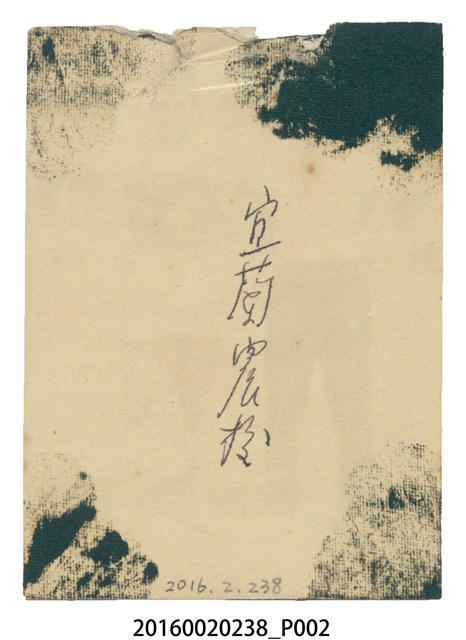 宜蘭農校
2016.2.238
20160020238_P002